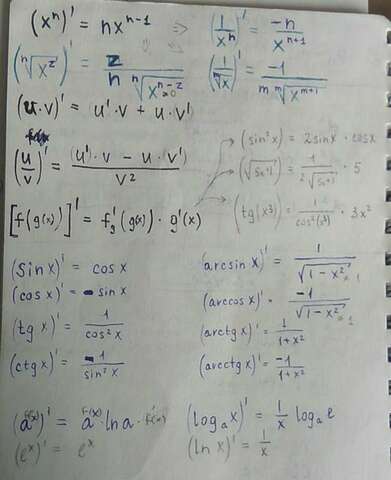 (xⁿ)' = nxⁿ⁻¹ ⇒ (1/xⁿ)' = -n/xⁿ⁺¹
(ⁿ√x^z)' = z/(n ⁿ√x^(n-z)) (1/ᵐ√x)' = -1/(m ᵐ√x^(m+1))
(u·v)' = (u'·v + u·v')
(u/v)' = (u'·v - u·v')/v²
(sin²x) = 2sinx · cosx
(√5x+1)' = 1/(2√5x+1) · 5
(tg(x³)) = 1/cos²(x³) · 3x²
[f(g(x))]' = f'g(g(x)) · g'(x)
(sin x)' = cos x (arcsin x)' = 1/√(1-x²)
(cos x)' = -sin x (arccos x)' = -1/√(1-x²)
(tg x)' = 1/cos²x (arctg x)' = 1/(1+x²)
(ctg x)' = -1/sin²x (arcctg x)' = -1/(1+x²)
(a^f(x))' = a^f(x) · ln a · f'(x) (logₐ x)' = 1/x logₐ e
(eˣ)' = eˣ (ln x)' = 1/x